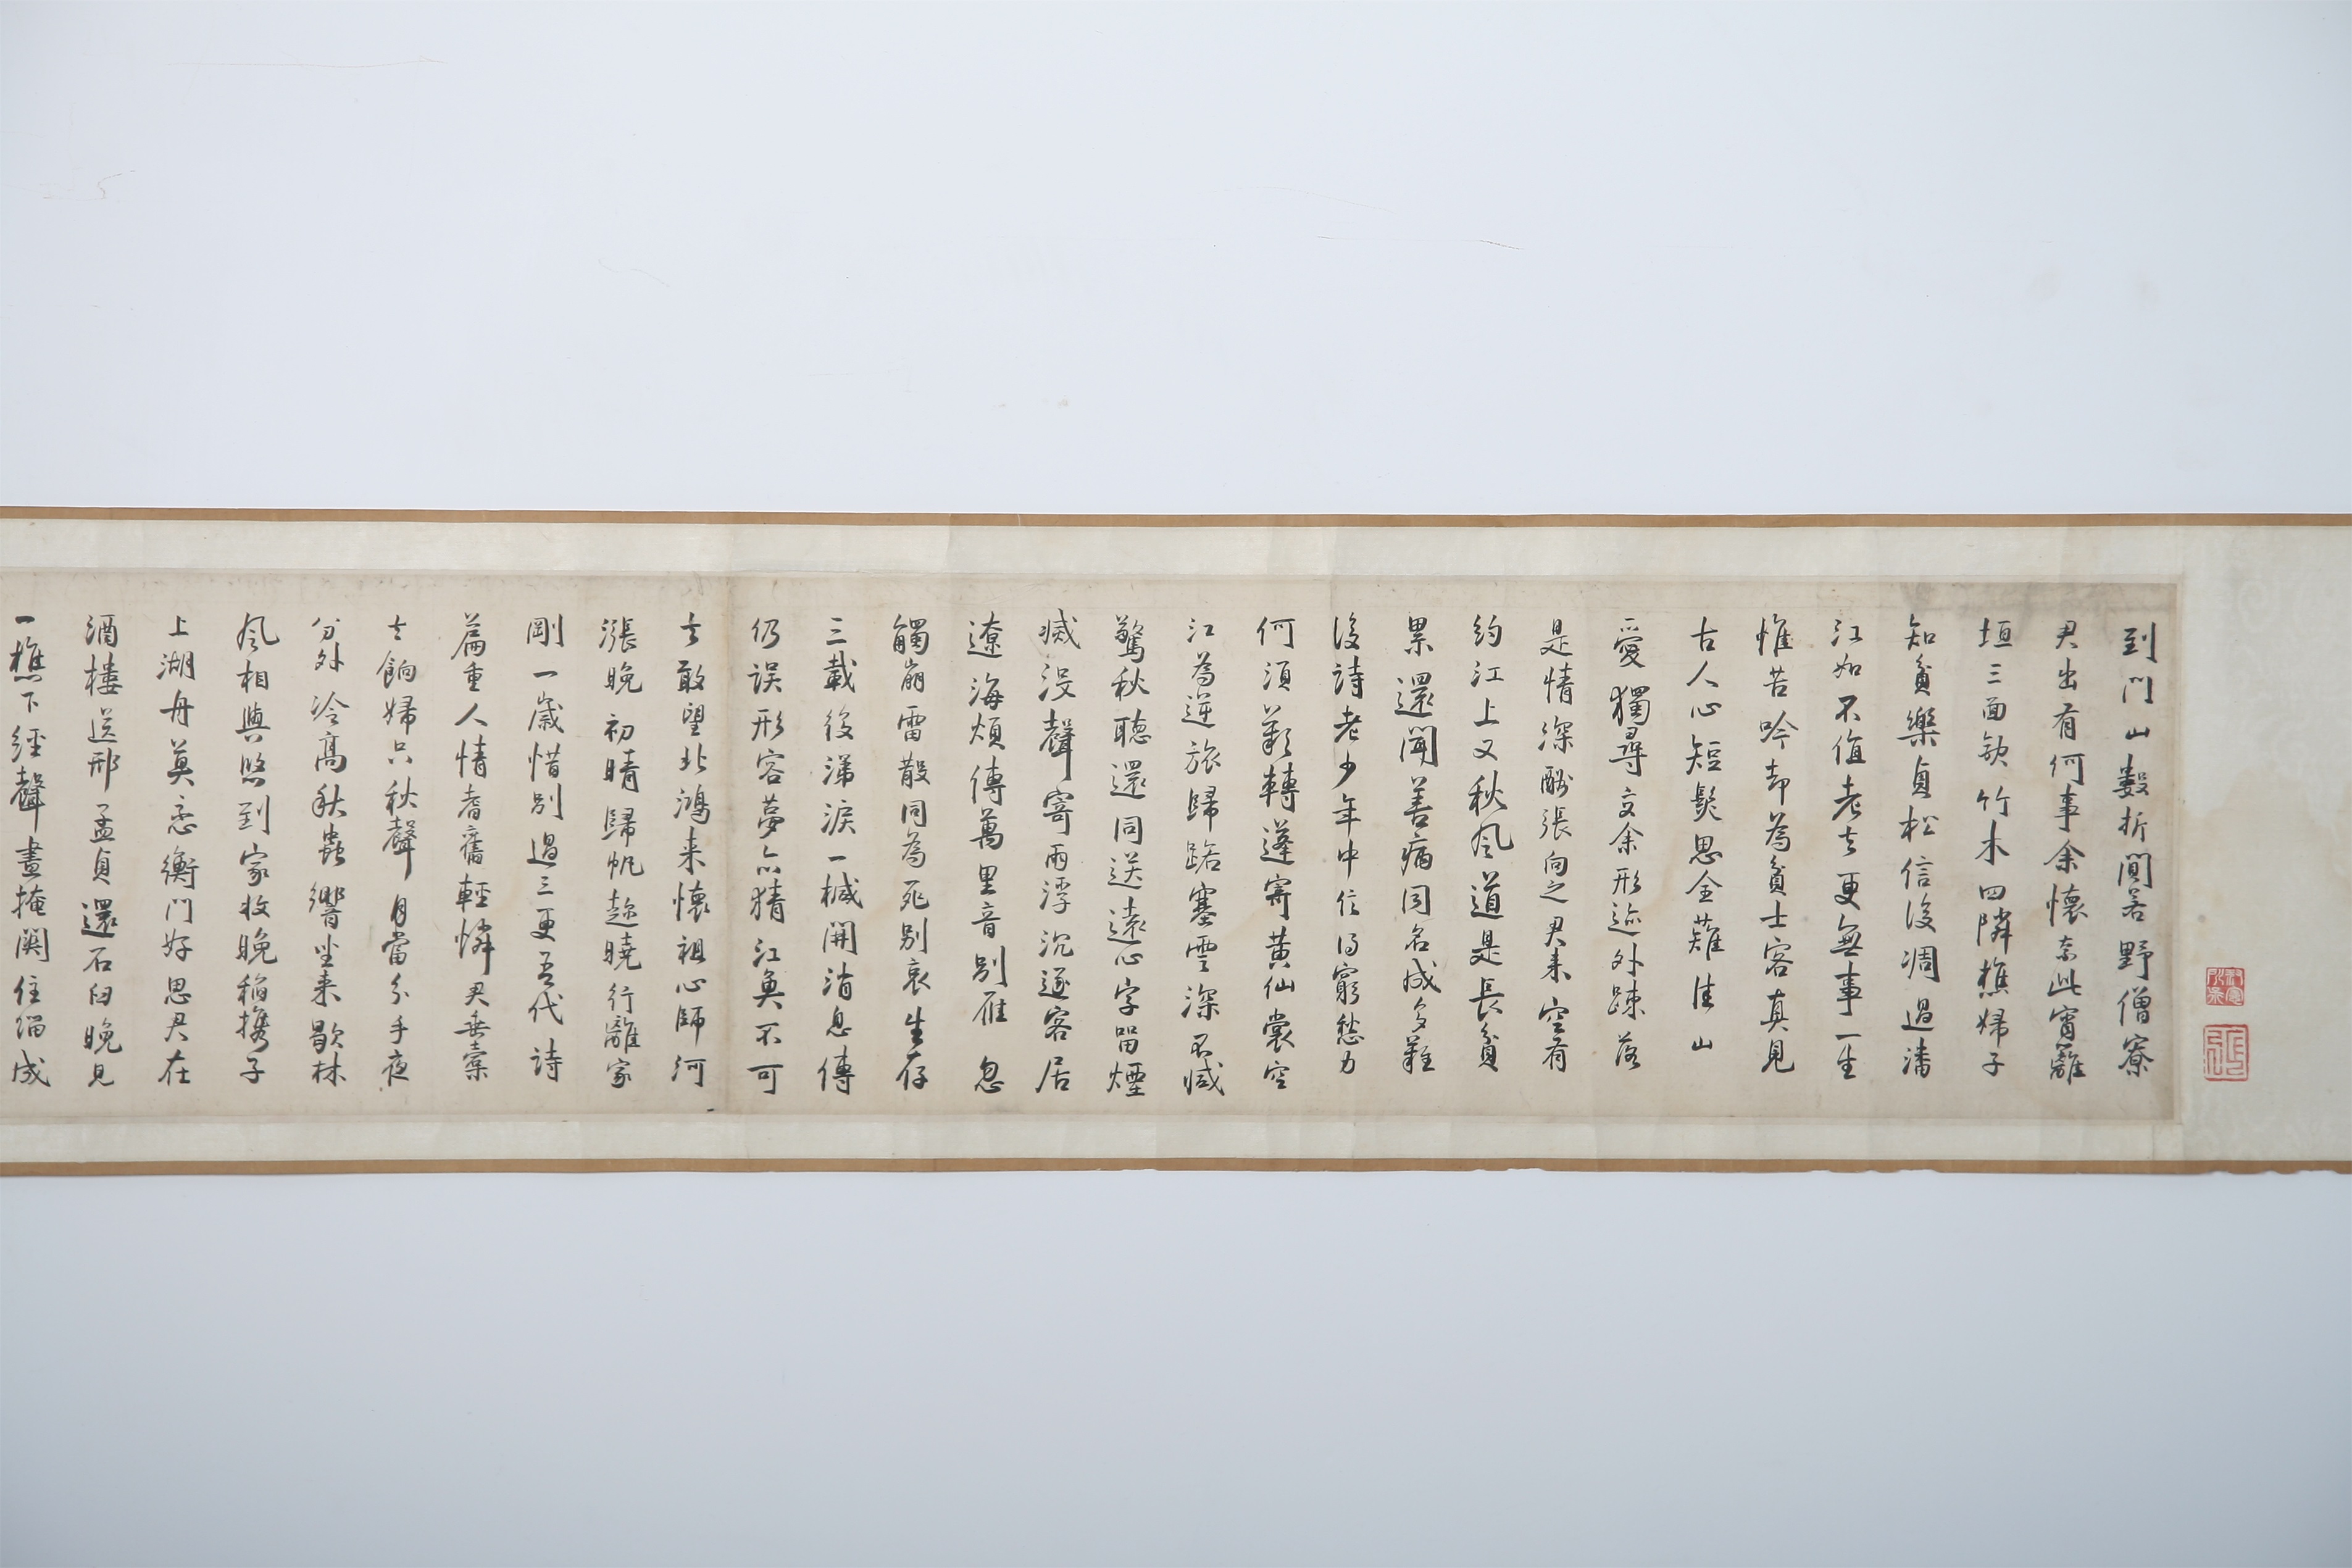 到門山數折閒若野僧寮
君出有何事余懷奈此宵籬
垣三面缺竹木四隣樵婦子
知貧樂貞松信後凋過潘
江如不值老去更無事一生
惟苦吟却為貧士客真見
古人心短髮思全薙佳山
愛獨尋交余形迹外踈落
是情深酬張向之君来空有
約江上又秋風道是長貧
累還聞善病同名成多難
後詩老少年中信得窮愁力
何須歎轉蓬寄黄仙裳空
江為逆旅歸路塞雲深不減
驚秋聽還同送遠心字留煙
滅没聲寄雨浮沉逐客居
遼海煩傳萬里音別雁忽
觸崩雷散同為死別哀生存
三載後涕淚一椷開消息傳
仍誤形容夢亦猜江魚不可
去敢望北鴻来懷祖心師河
漲晚初晴歸帆趂曉行離家
剛一歲惜別過三更吾代詩
篇重人情耆舊輕憐君垂橐
去餉婦只秋聲月當分手夜
分外冷高秋蟲響坐来歇林
風相與悠到家收晚稲攜子
上湖舟莫忘衡門好思君在
酒樓送邢孟貞還石臼晚見
一樵下經聲晝掩関住緇成